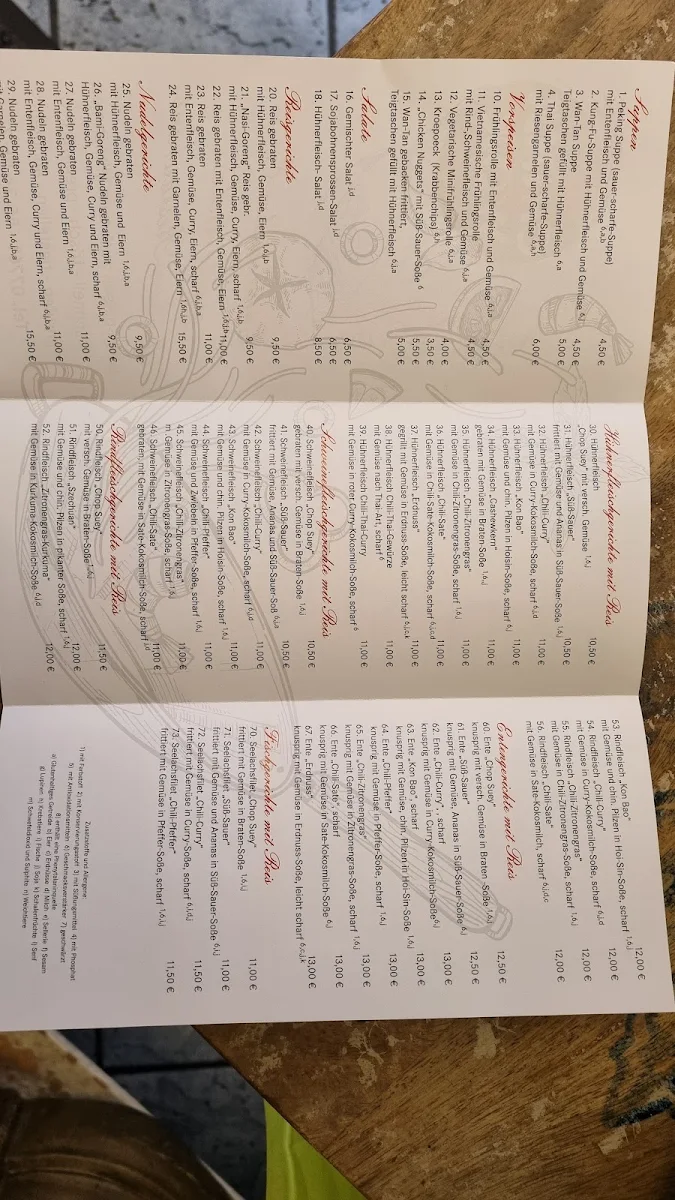 Suppen
1. Peking Suppe (sauer-scharfe-Suppe)
mit Entenfleisch und Gemüse 6,a,b 4,50 €
2. Kung-Fu-Suppe mit Hühnerfleisch und Gemüse 6,j 4,50 €
3. Wan-Tan Suppe
Teigtaschen gefüllt mit Hühnerfleisch 6,a 5,00 €
4. Thai Suppe (sauer-scharfe-Suppe),
mit Riesengarnelen und Gemüse 6,a,h 6,00 €
Vorspeisen
10. Frühlingsrolle mit Entenfleisch und Gemüse 6,j,a 4,50 €
11. Vietnamesische Frühlingsrolle
mit Rind-,Schweinefleisch und Gemüse 6,j,a 4,50 €
12. Vegetarische Minifrühlingsrolle 6,j,a 4,00 €
13. Kroepoeck (Krabbenchips) 6,h 3,50 €
14. „Chicken Nuggets" mit Süß-Sauer-Soße 6 5,50 €
15. Wan-Tan gebacken frittiert,
Teigtaschen gefüllt mit Hühnerfleisch 6,j,a 5,00 €
Salate
16. Gemischter Salat j,d 6,50 €
17. Sojabohnensprossen-Salat j,d 6,50 €
18. Hühnerfleisch- Salat j,d 8,50 €
Reisgerichte
20. Reis gebraten
mit Hühnerfleisch, Gemüse, Eiern 1,6,j,b 9,50 €
21. „Nasi-Goreng" Reis gebr.
mit Hühnerfleisch, Gemüse, Curry, Eiern, scharf 1,6,j,b 9,50 €
22. Reis gebraten mit Entenfleisch, Gemüse, Eiern 1,6,j,b 11,00 €
23. Reis gebraten
mit Entenfleisch, Gemüse, Curry, Eiern, scharf 6,j,b,a 11,00 €
24. Reis gebraten mit Garnelen, Gemüse, Eiern 1,6,h,j,b 15,50 €
Nudelgerichte
25. Nudeln gebraten
mit Hühnerfleisch, Gemüse und Eiern 1,6,j,b,a 9,50 €
26. „Bami-Goreng" Nudeln gebraten mit
Hühnerfleisch, Gemüse, Curry und Eiern, scharf 6,j,b,a 9,50 €
27. Nudeln gebraten
mit Entenfleisch, Gemüse und Eiern 1,6,j,b,a 11,00 €
28. Nudeln gebraten
mit Entenfleisch, Gemüse, Curry und Eiern, scharf 6,j,b,a 11,00 €
29. Nudeln gebraten
mit Garnelen, Gemüse und Eiern 1,6,j,b,a 15,50 €
Hühnerfleischgerichte mit Reis
30. Hühnerfleisch
„Chop Suey" mit versch. Gemüse 1,6,j 10,50 €
31. Hühnerfleisch „Süß-Sauer"
frittiert mit Gemüse und Ananas in Süß-Sauer-Soße 1,6,j 10,50 €
32. Hühnerfleisch „Chili-Curry"
mit Gemüse in Curry-Kokosmilch-Soße, scharf 6,j,d 11,00 €
33. Hühnerfleisch „Kon Bao"
mit Gemüse und chin. Pilzen in Hoisin-Soße, scharf 6,j 11,00 €
34. Hühnerfleisch „Cashewkern"
gebraten mit Gemüse in Braten-Soße 1,6,j 11,00 €
35. Hühnerfleisch „Chili-Zitronengras"
mit Gemüse in Chili-Zitronengras-Soße, scharf 1,6,j 11,00 €
36. Hühnerfleisch „Chili-Sate"
mit Gemüse in Chili-Sate-Kokosmilch-Soße, scharf 6,j,c,d 11,00 €
37. Hühnerfleisch „Erdnuss"
gegrillt mit Gemüse in Erdnuss-Soße, leicht scharf 6,j,c,k 11,00 €
38. Hühnerfleisch Chili-Thai-Gewürze
mit Gemüse nach Thai-Art, scharf 6 11,00 €
39. Hühnerfleisch Chili-Thaicurry
mit Gemüse in roter Curry-Kokosmilch-Soße, scharf 6 11,00 €
Schweinefleischgerichte mit Reis
40. Schweinefleisch „Chop Suey"
gebraten mit versch. Gemüse in Braten-Soße 1,6,j 10,50 €
41. Schweinefleisch „Süß-Sauer"
frittiert mit Gemüse, Ananas und Süß-Sauer-Soß 6,j,a 10,50 €
42. Schweinefleisch „Chili-Curry"
mit Gemüse in Curry-Kokosmilch-Soße, scharf 6,j,d 11,00 €
43. Schweinefleisch „Kon Bao"
mit Gemüse und chin. Pilzen in Hoisin-Soße, scharf 1,6,j 11,00 €
44. Schweinefleisch „Chili-Pfeffer"
mit Gemüse und Zwiebeln in Pfeffer-Soße, scharf 1,6,j 11,00 €
45. Schweinefleisch „Chili-Zitronengras"
m. Gemüse in Zitronengras-Soße, scharf 1,6,j 11,00 €
46. Schweinefleisch „Chili-Sate"
gebraten, mit Gemüse in Sate-Kokosmilch-Soße, scharf j,d 11,00 €
Rindfleischgerichte mit Reis
50. Rindfleisch „Chop Suey"
mit versch. Gemüse in Braten-Soße 1,6,j 11,50 €
51. Rindfleisch „Szechuan"
mit Gemüse und chin. Pilzen in pikanter Soße, scharf 1,6,j 12,00 €
52. Rindfleisch „Zitronengras-Kurkuma"
mit Gemüse in Kurkuma-Kokosmilch-Soße 6,j,d 12,00 €
53. Rindfleisch „Kon Bao"
mit Gemüse und chin. Pilzen in Hoi-Sin-Soße, scharf 1,6,j 12,00 €
54. Rindfleisch „Chili-Curry"
mit Gemüse in Curry-Kokosmilch-Soße, scharf 6,j,d 12,00 €
55. Rindfleisch „Chili-Zitronengras"
mit Gemüse in Zitronengras-Soße, scharf 1,6,j 12,00 €
56. Rindfleisch „Chili-Sate"
mit Gemüse in Sate-Kokosmilch-Soße, scharf 6,j,d,c 12,00 €
Entengerichte mit Reis
60. Ente „Chop Suey"
knusprig mit versch. Gemüse in Braten -Soße 1,6,j 12,50 €
61. Ente „Süß-Sauer"
knusprig mit Gemüse, Ananas in Süß-Sauer-Soße 6,j 12,50 €
62. Ente „Chili-Curry", , scharf
knusprig mit Gemüse in Curry-Kokosmilch-Soße 6,j 13,00 €
63. Ente „Kon Bao", scharf
knusprig mit Gemüse, chin. Pilzen in Hoi-Sin-Soße 1,6,j 13,00 €
64. Ente „Chili-Pfeffer"
knusprig mit Gemüse in Pfeffer-Soße, scharf 1,6,j 13,00 €
65. Ente „Chili-Zitronengras"
knusprig mit Gemüse in Zitronengras-Soße, scharf 1,6,j 13,00 €
66. Ente „Chili Sate", scharf
knusprig mit Gemüse in Sate-Kokosmilch-Soße 6,j 13,00 €
67. Ente „Erdnuss"
knusprig mit Gemüse in Erdnuss-Soße, leicht scharf 6,c,j,k 13,00 €
Fischgerichte mit Reis
70. Seelachsfilet „Chop Suey"
frittiert mit Gemüse in Braten-Soße 1,6,i,j 11,00 €
71. Seelachsfilet „Süß-Sauer"
frittiert mit Gemüse und Ananas in Süß-Sauer-Soße 6,i,j 11,00 €
72. Seelachsfilet „Chili-Curry"
frittiert mit Gemüse in Curry-Soße, scharf 6,i,d,j 11,50 €
73. Seelachsfilet „Chili-Pfeffer"
frittiert mit Gemüse in Pfeffer-Soße, scharf 1,6,i,j 11,50 €
Zusatzstoffe und Allergene:
1) mit Farbstoff 2) mit Konservierungsstoff 3) mit Süßungsmittel 4) mit Phosphat
5) mit Antioxidationsmittel 6) Geschmacksverstärker 7) geschwärzt
8) enthält eine Phenylalaninquelle
a) Glutenhaltiges Getreide b) Eier c) Erdnüsse d) Milch e) Sellerie f) Sesam
g) Lupinen h) Krebstiere i) Fische j) Soja k) Schalenfrüchte l) Senf
m) Schwefeldioxid und Sulphite n) Weichtiere